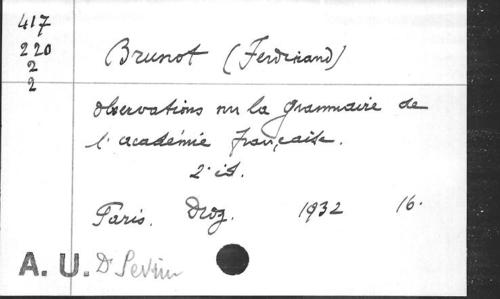 417
220
2
2
Brunot (Ferdinand)
observations sur la grammaire de
l'académie française.
2e éd.
Paris. Droz. 1932 16.
A. U. Dr